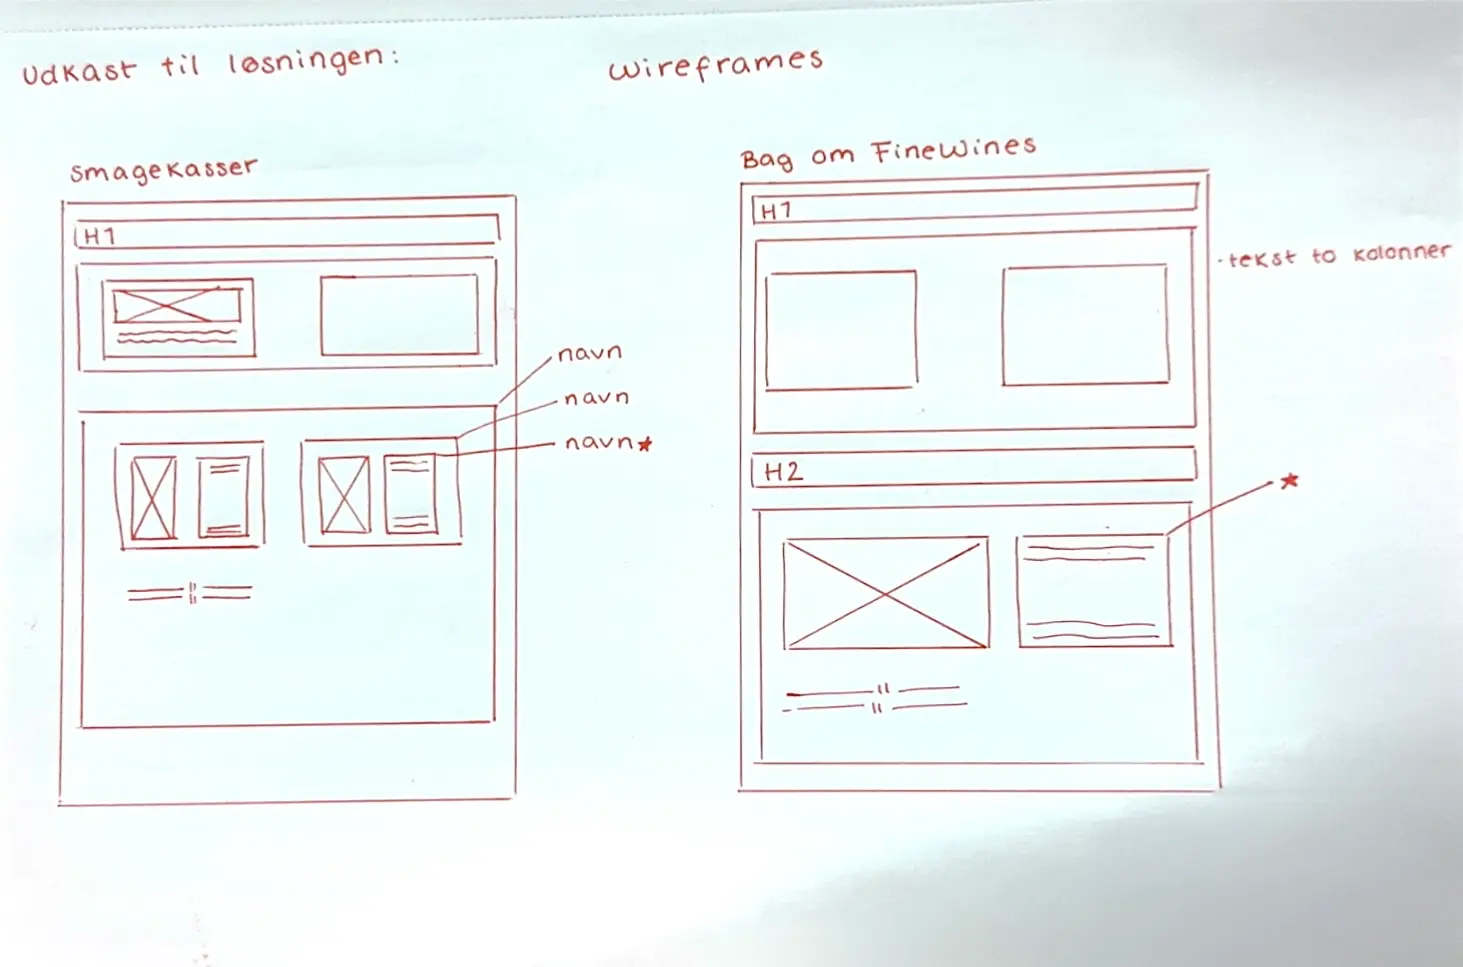 Udkast til løsningen:
Wireframes
Smagekasser
H1
navn
navn
navn★
Bag om FineWines
H1
-tekst to kolonner
H2
★